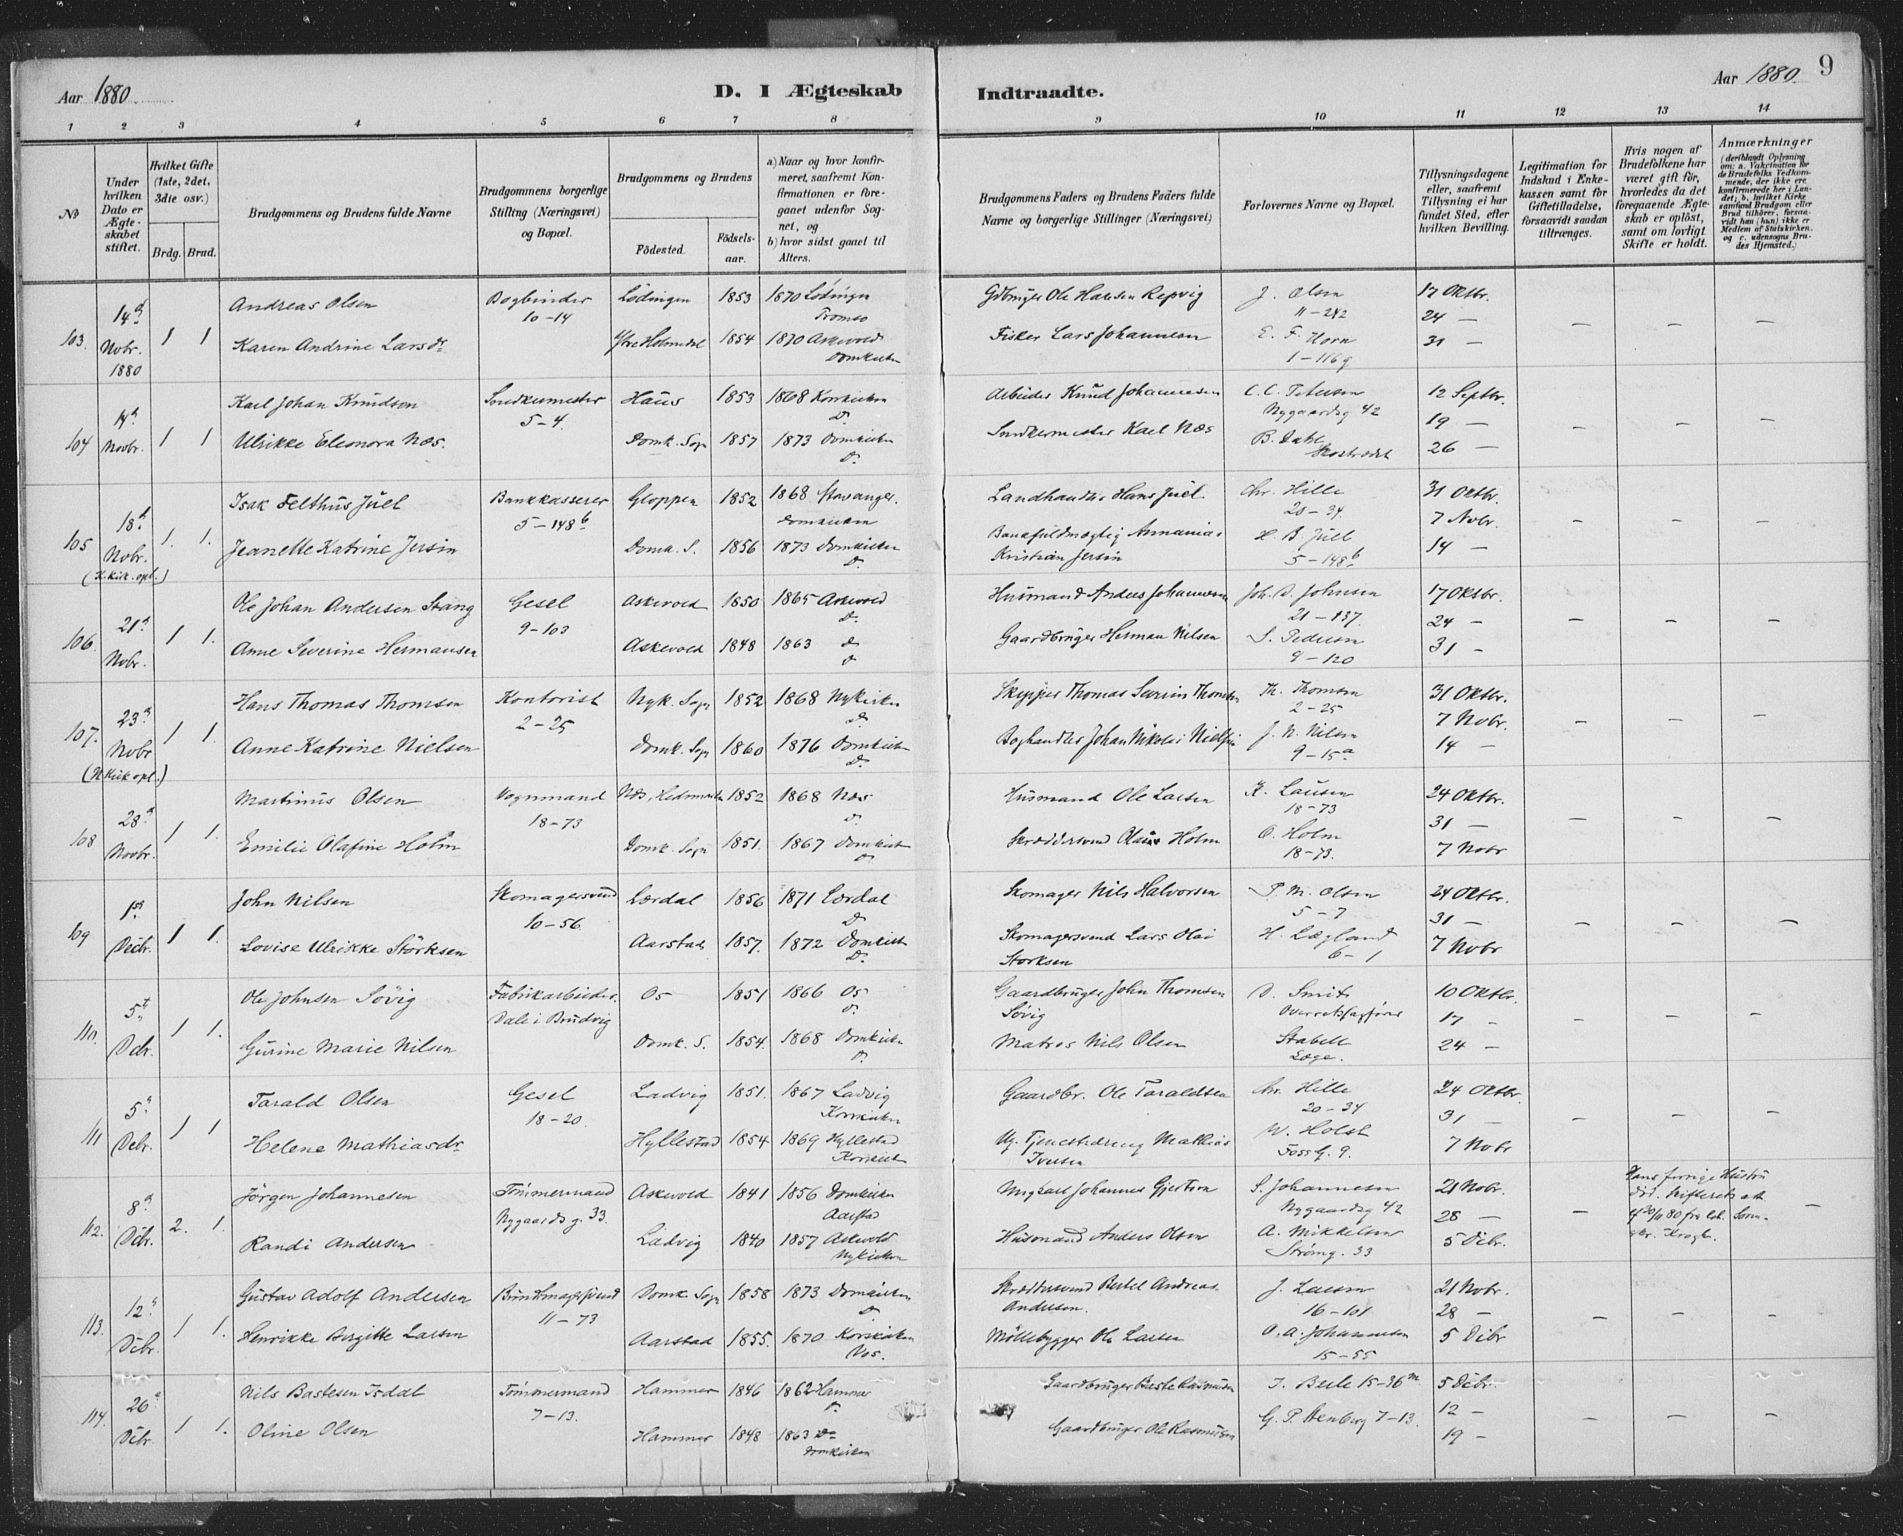 Aar 1880
D. I Ægteskab
Indtraadte.
Aar 1880. 9
1 2 3 4 5 6 7 8 9 10 11 12 13 14
No
Under hvilken Dato er Ægteskabet stiftet.
Hvilket Gifte (1ste, 2det, 3die osv.)
Brdg. Brud.
Brudgommens og Brudens fulde Navne
Brudgommens borgerlige Stilling (Næringsvei) og Bopæl.
Brudgommens og Brudens
Födested.
Födselsaar.
a) Naar og hvor konfirmeret, saafremt Konfirmationen er foregaaet udenfor Sognet, og
b) hvor sidst gaaet til Alters.
Brudgommens Faders og Brudens Faders fulde Navne og borgerlige Stillinger (Næringsvei)
Forlovernes Navne og Bopæl.
Tillysningsdagene eller, saafremt Tillysning ei har fundet Sted, efter hvilken Bevilling.
Legitimation for Indskud i Enkekassen samt for Giftetilladelse, forsaavidt saadan tiltrænges.
Hvis nogen af Brudefolkene har været gift för, hvorledes da det foregaaende Ægteskab er oplöst, samt om lovligt Skifte er holdt.
Anmærkninger
(deriblandt Oplysning om: a. Vakcination for de Brudefolks Vedkommende, der ikke ere konfirmerede her i Landet; b. hvilket Kirkesamfund Brudgom eller Brud tilhörer, forsaavidt han (hun) ikke er Medlem af Statskirken, og c. udensogns Brudes Hjemsted.)
103. 14d Nobr. 1880 1 1 Andreas Olsen Bogbinder 10-14 Lødingen 1853 1870 Lødingen Tromsø Gdbruger Ole Hansen Repvig J. Olsen 11-242 17 Oktbr.
24 —
Karen Andrine Larsdr Ytre Holmedal 1854 1870 Askevold Domkirken Fisker Lars Johannesen E. F. Horn 1-116g 31 —
104 14d Novbr. 1 1 Karl Johan Knudsen Snedkermester 5-4. Haus 1853 1868 Korskirken D. Arbeider Knud Johannesen C. C. Petersen Nygaardsg 42 12 Septbr.
19 —
Ulrikke Eleonora Næs. Domk. Sogn 1857 1873 Domkirken D. Snedkermester Karl Næs B. Dahl 26 —
105 18d Nobr. (K.kirk. opl.) 1. 1. Isak Felthus Juel Bankkasserer 5-148b Gloppen 1852 1868 Stavanger. Domkirken Landhandler Hans Juel. Chr. Hille 20-34. 31 Oktbr.
7 Nobr.
Jeanette Katrine Jersin Domk. S. 1856 1873 Domkirken D. Bankfuldmægtig Annanias Kristian Jersin H. B. Juel 5-148b 14 —
106. 21d Nobr. 1 1. Ole Johan Andersen Stang Gesel 9-103 Askevold 1850 1865 Askevold D. Husmand Anders Johannesen Joh. D. Johnsen 21-137. 17 Oktbr.
24 —
Anne Severine Hermansen Askevold 1848 1863 d d Gaardbruger Herman Nilsen S. Pedersen 9-120 31 —
107. 23d Nobr (N.Kirk opl.) 1 1. Hans Thomas Thomsen Kontorist 2-25 Nyk. Sogn 1852 1868 Nykirken D. Skipper Thomas Severin Thomsen Th. Thomsen 2-25 31 Oktbr.
7 Nobr.
Anne Katrine Nielsen Domk. Sogn 1860 1876 Domkirken D. Boghandler Johan Nikolai Nielsen J. N. Nilsen 9-15a 14 —
108 28d Novbr. 1 1. Martinus Olsen Vognmand 18-73 Næs, Hedemarken 1852 1868 Næs D. Husmand Ole Larsen K. Lausen 18-73 24 Oktbr.
31 —
Emilie Olafine Holm Domk. Sogn 1851. 1867 Domkirken D Skræddersvend Olaus Holm O. Holm 18-73. 7 Nobr
109 1st Decbr. 1 1. John Nilsen Skomagersvend 10-56. Lærdal 1856 1871 Lærdal D Skomager Nils Halvorsen P. M. Olsen 5-7 24 Oktbr.
31 —
Lovise Ulrikke Störksen Aarstad 1857. 1872 Domkirken D. Skomagersvend Lars Olai Storksen H. Lægland 6-1 7 Nobr
110. 5t Dcbr. 1 1. Ole Johnsen Søvig Fabrikarbeider. Dale i Brudvig Os 1851 1866 Os D. Gaardbruger John Thomsen Søvig D. Smit Overretssagfører 10 Oktbr.
17 —
Gurine Marie Nilsen Domk. S. 1854. 1868 Domkirken D. Matros Nils Olsen Stabell Læge. 24 —
111 5d Debr. 1 1 Tarald Olsen Gesel 18-20. Ladvig 1851. 1867 Ladvig Korskirken Gaardbr. Ole Taraldsen Chr. Hille 20-34 24 Oktbr.
31 —
Helene Mathiasdr. Hyllestad 1854 1869 Hyllestad Korskirk Ug. Tjenestedreng Mathias Iversen W. Holst Foss G. 9. 7 Nobr
112. 8d Dcbr. 2. 1. Jörgen Johannesen Tømmermand Nygaards g. 33. Askevold 1841 1856 Domkirken Aarstad Ungkarl Johannes Gjertsen S. Johannesen Nygaardsg 42 21 Nobr.
28 —
Hans forrige Hustru død. Skifteret att. af 20/11 80
Randi Andersen Ladvig 1840 1857 Askevold Nykirken Husmand Anders Olsen A. Mikkelsen Strømg. 33 5 Dcbr.
113. 12d Dcbr 1 1. Gustav Adolf Andersen Buntmagersvend 11-73 Domk. Sogn 1858 1873 Domkirken D. Skræddersvend Bertel Andreas Andersen. J. Larsen 16-101 21 Nobr.
28 —
Henrikke Birgitte Larsen Aarstad 1855. 1870 Korskirken Vos. Møllebygger Ole Larsen O. A. Johannesen 15-55 5 Dcbr
114. 26d Dcbr 1 1. Nils Bastesen Isdal Tømmermand 7-13. Hammer 1846 1862 Hammer D. Gaardbruger Baste Rasmussen J. Berle 15-36m 5 Dcbr.
12 —
Oline Olsen Hammer 1848 1863 Do Domkirken Gaardbruger Ole Rasmussen G. P. Stenberg 7-13. 19 —